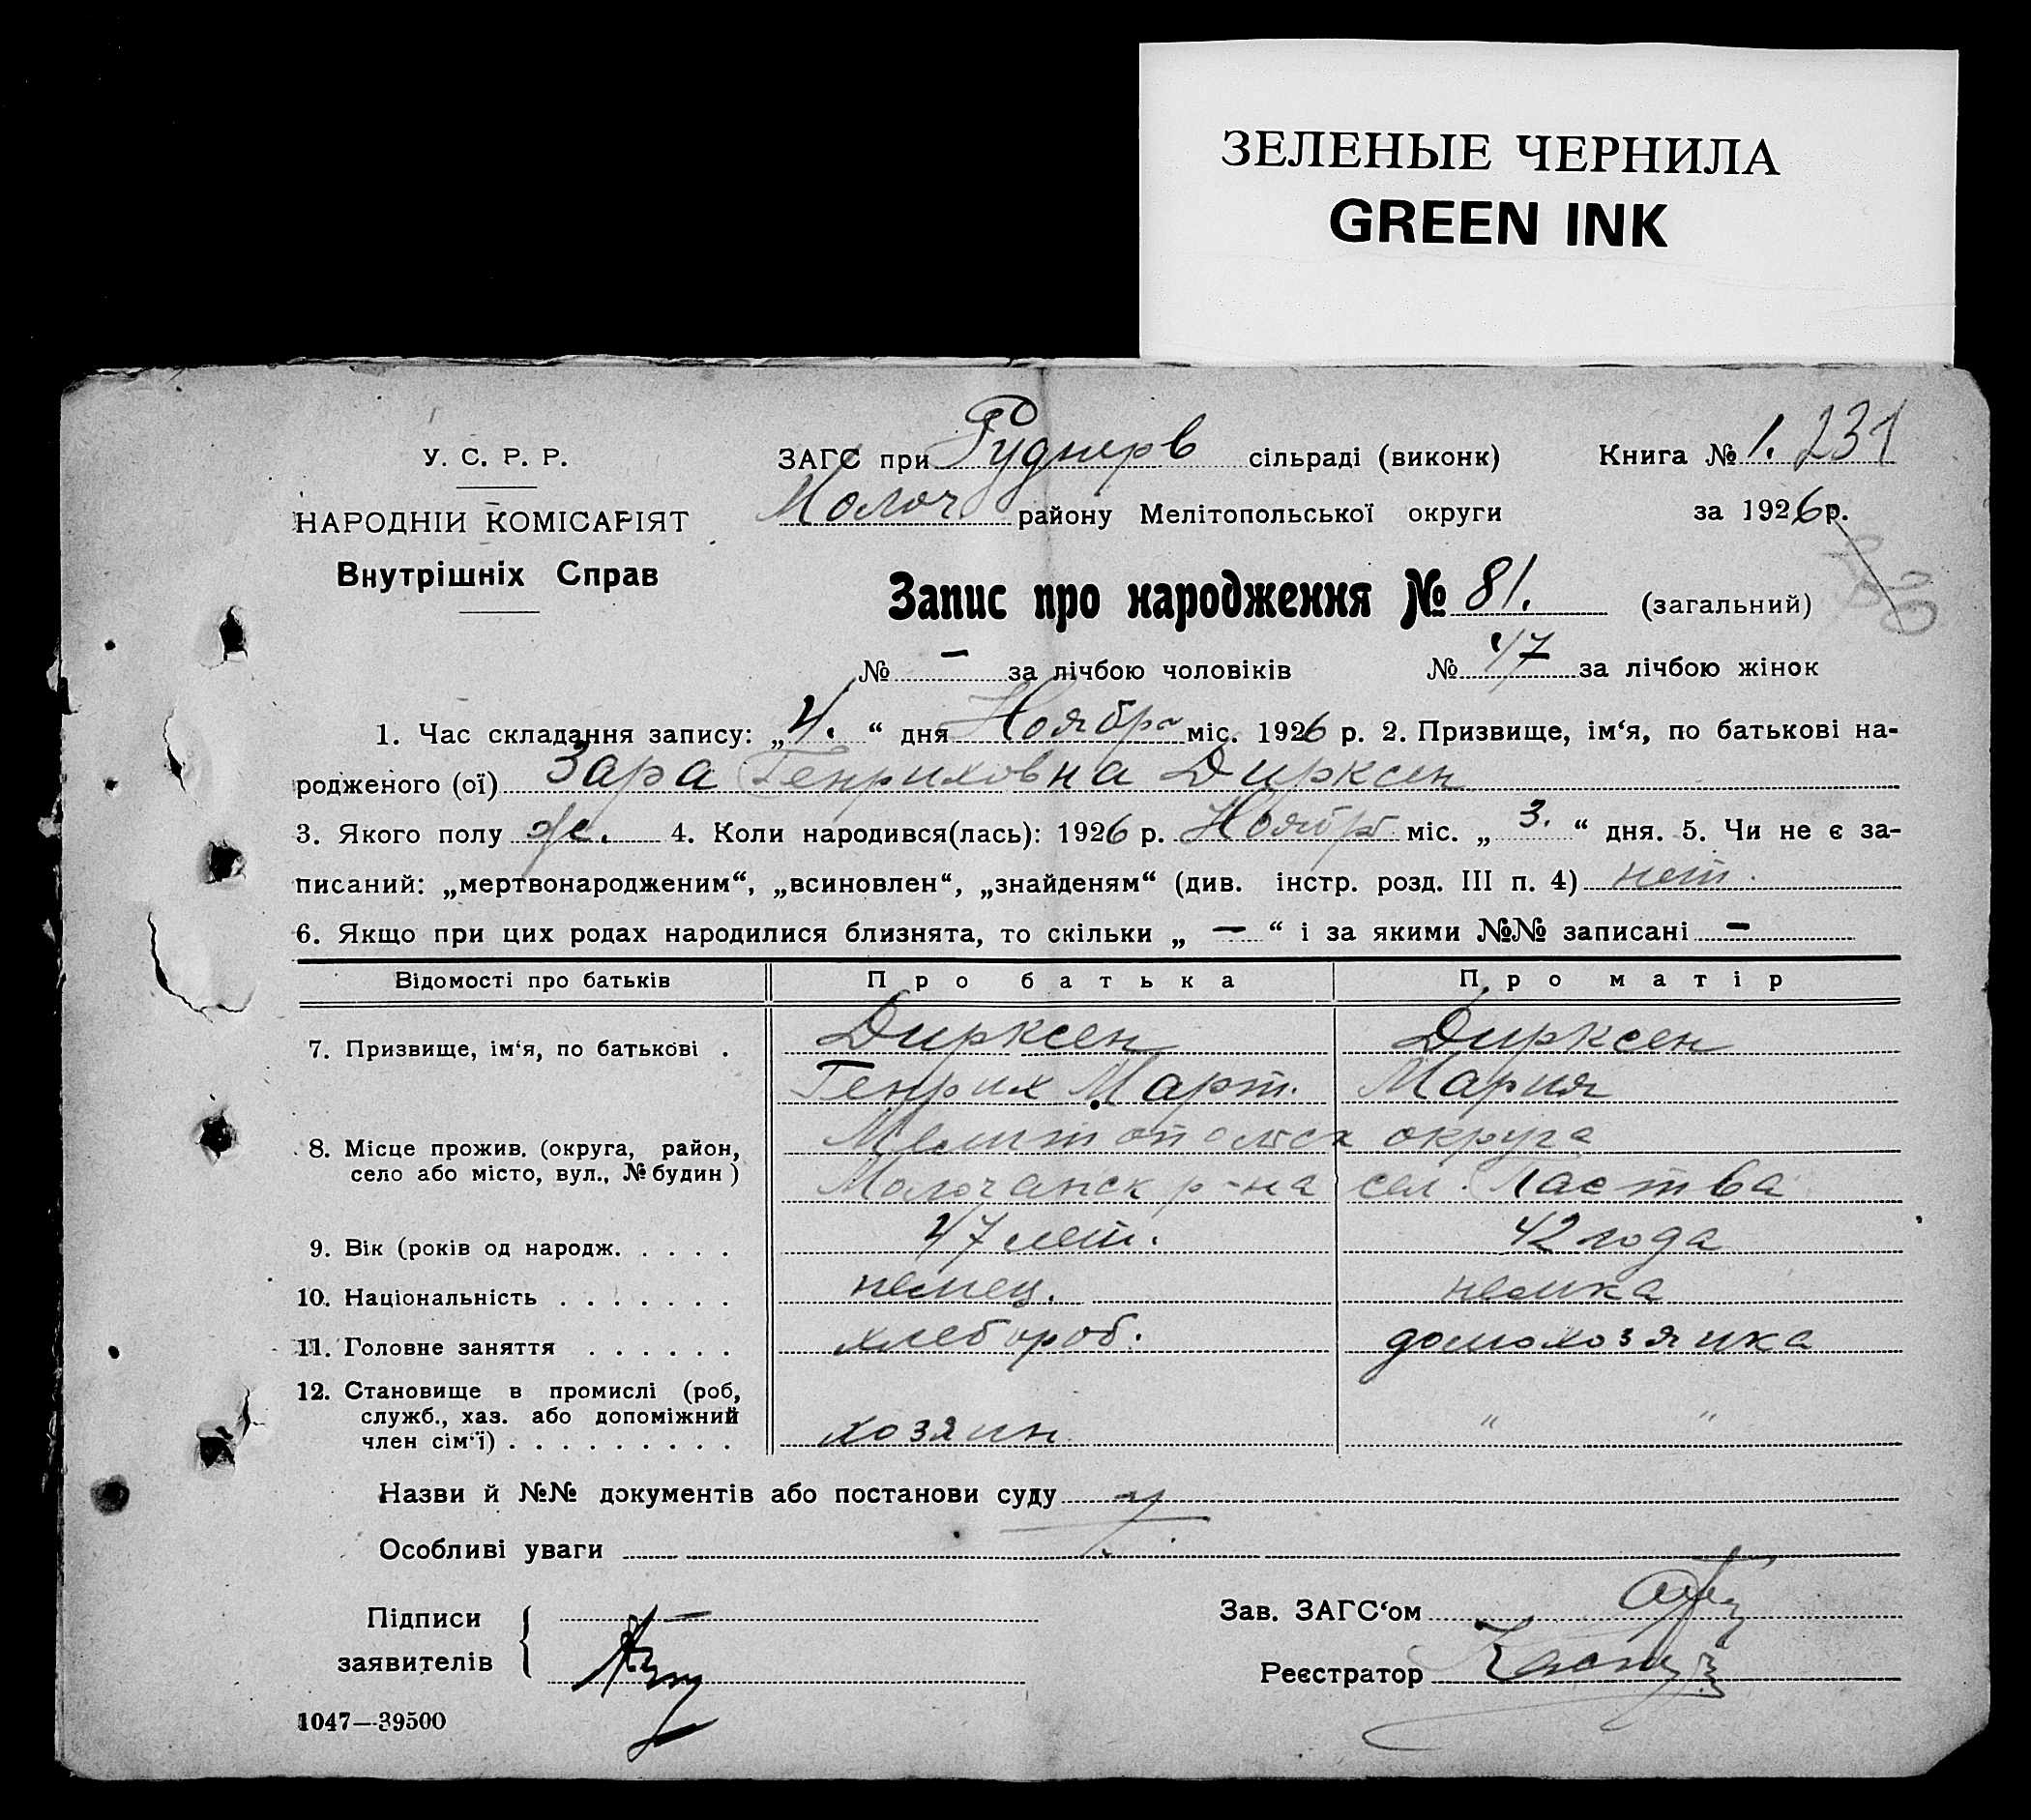 ЗЕЛЕНЫЕ ЧЕРНИЛА
GREEN INK
У. С. Р. Р.
ЗАГС при Руднерв сільраді (виконк)
Книга № 1. 231
НАРОДНІЙ КОМІСАРІЯТ
Молоч району Мелітопольської округи
за 1926 р.
Внутрішніх Справ
Запис про народження № 81. (загальний)
№ – за лічбою чоловіків № 47 за лічбою жінок
1. Час складання запису: „4.“ дня Ноября міс. 1926 р. 2. Призвище, ім‘я, по батькові на-
родженого (ої) Зара Генриховна Дирксен
3. Якого полу ж. 4. Коли народився(лась): 1926 р. Ноябр міс. „3.“ дня. 5. Чи не є за-
писаний: „мертвонародженим“, „всиновлен“, „знайденям“ (див. інстр. розд. III п. 4) нет.
6. Якщо при цих родах народилися близнята, то скільки „ – “ і за якими №№ записані –
Відомості про батьків Про батька Про матір
7. Призвище, ім‘я, по батькові . Дирксен Дирксен
Генрих Март. Мария
8. Місце прожив. (округа, район, Мелитопольск округа
село або місто, вул., № будин) Молочанск р-на сел. Паства
9. Вік (років од народж. . . . . 47 лет. 42 года
10. Національність . . . . . . . немец. немка
11. Головне заняття . . . . . . хлебороб. домохозяика
12. Становище в промислі (роб,
служб., хаз. або допоміжний
член сім‘ї) . . . . . . . . . хозяин " "
Назви й №№ документів або постанови суду
Особливі уваги
Підписи
заявителів
Зав. ЗАГС‘ом
Реєстратор
1047—39500